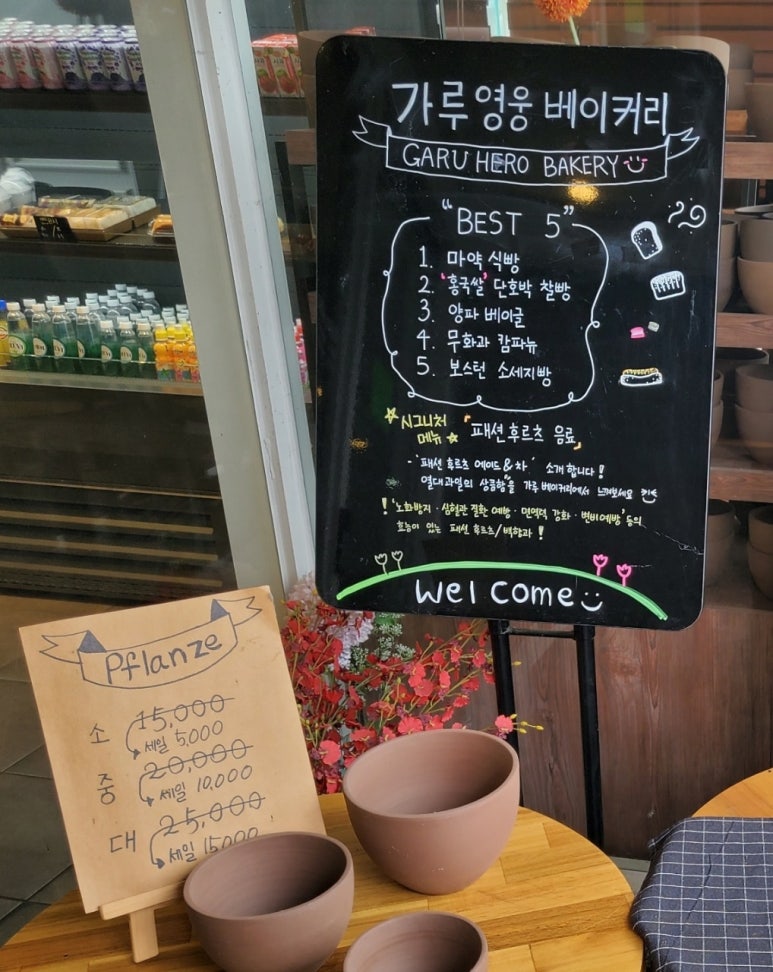 가루영웅 베이커리
GARU HERO BAKERY
"BEST 5"
1. 마약 식빵
2. '홍국쌀' 단호박 찰빵
3. 양파 베이글
4. 무화과 캄파뉴
5. 보스턴 소세지빵
시그니처
메뉴
「패션후르츠 음료」
- '패션 후르츠 에이드 & 차' 소개합니다!
열대과일의 상큼함"을 가루 베이커리에서 느껴보세요
! '노화방지 · 심혈관 질환 예방 · 면역력 강화 · 변비예방' 등의
효능이 있는 패션 후르츠/백향과 !
Welcome
Pflanze
소 15,000
세일 5,000
중 20,000
세일 10,000
대 25,000
세일 15,000